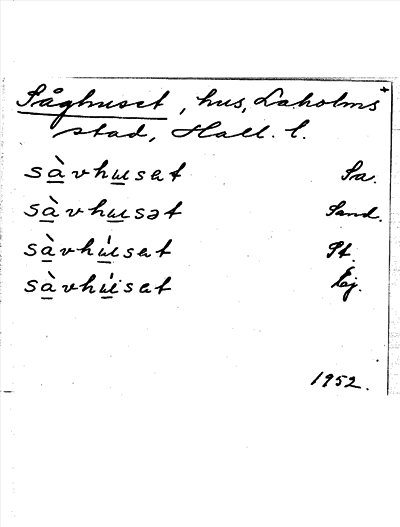 Såghuset, hus, Laholms +
stad, Hall. l.
sàvhuset Sa.
sàvhusət Sand.
sàvhúset St.
sàvhúset Ej.
1952.